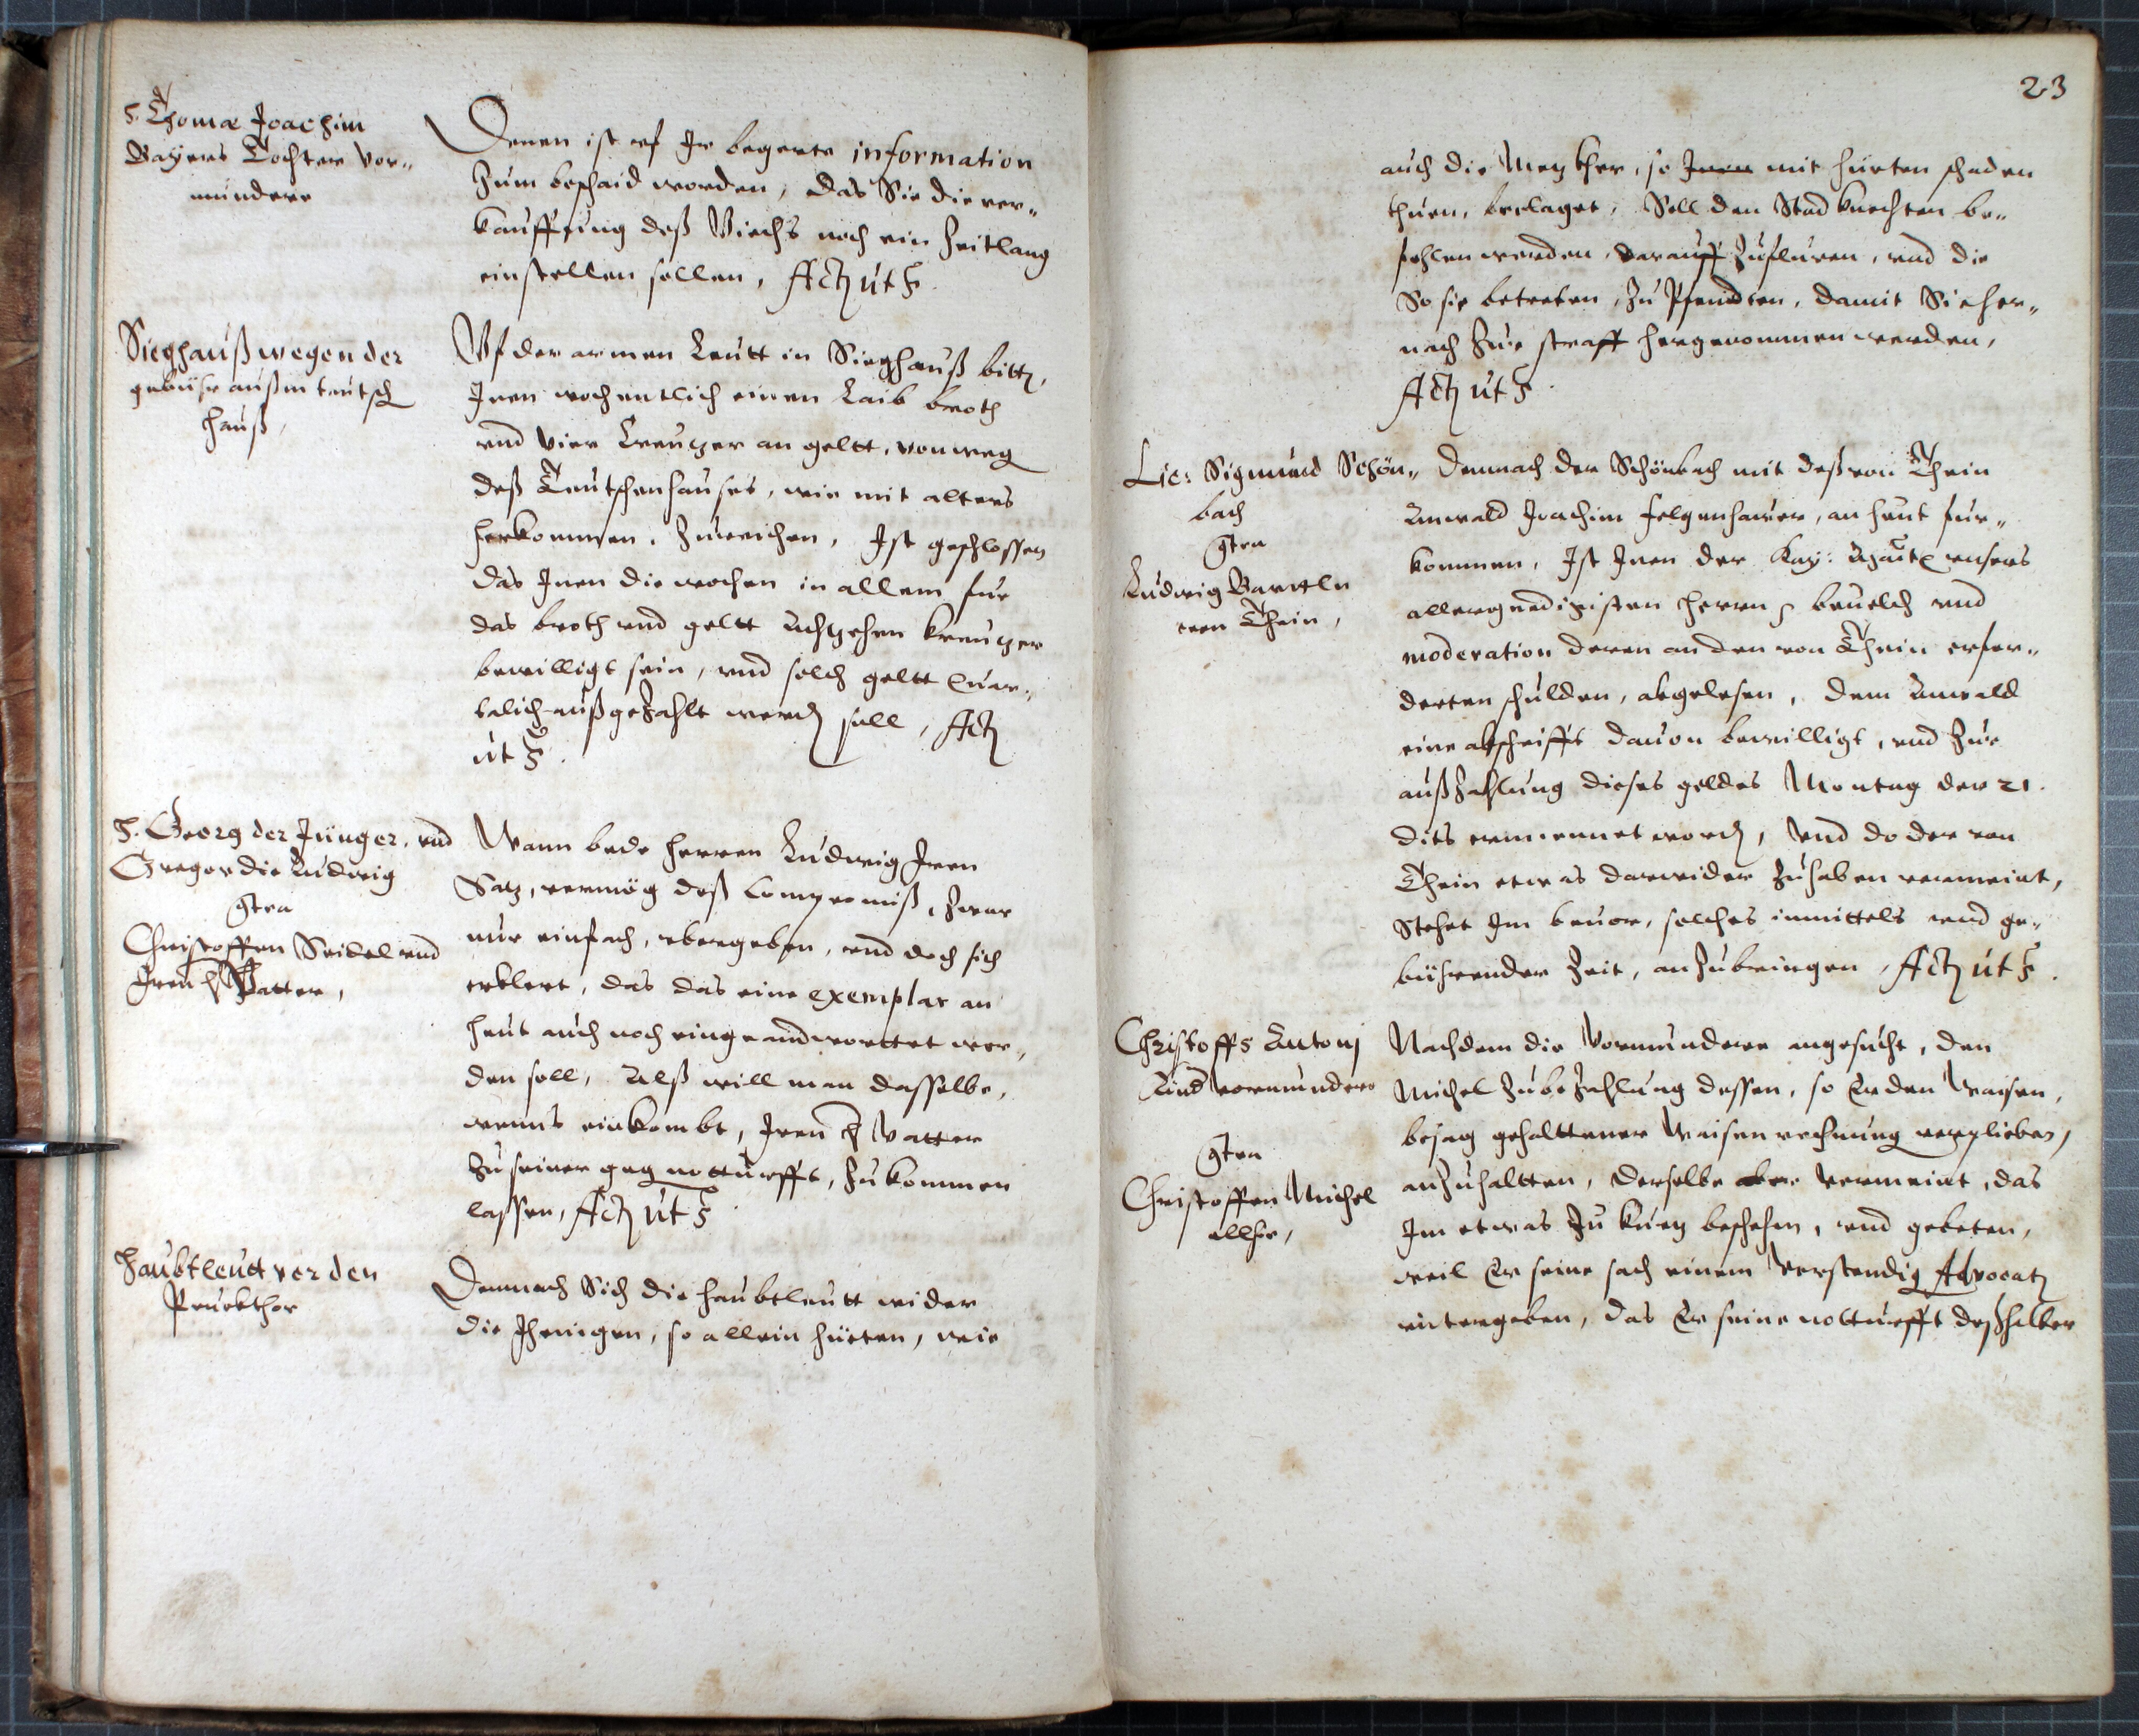 H. Thomæ Joachim
Bayers Tochter Vor-
mundere
Denen ist vf Ir begerte information
Zum beschaid worden, das Sie die ver-
kauffung deß Viechs noch ein Zeitlang
einstellen sollen, Act ut S.
Siechauß wegen der
gebühr außm teutsch
hauß,
Vf der armen Leutt in Siechhauß bitt,
Inen wochentlich einen Laib broth
vnd vier Creutzer an geltt, von weg
deß Teutschenhauses, wie mit alters
herkommen, Zureichen, Ist geschlossen
das Inen die wochen in allem fur
das broth vnd geltt Achtzehen kreutzer
bewilligt sein, vnd solch geltt Quar-
talich außgeZahlt werd soll, Act
ut S.
H. Georg der Jünger, vnd
Gregor die Ludwig
gtra
Christoffen Seidel vnd
Iren H Vatter,
Wann bede herren Ludwig Iren
Satz, vermög deß Compromiß, Zwar
nur einfach, vbergeben, vnd doch sich
erklert, das das eine exemplar an
heut auch noch eingeandworttet wer-
den soll, Alß will man dasselbe,
wenns einkombt, Iren H Vatter
Zu seiner geg notturfft, Zukommen
lassen, Act ut S
Haubtleutt vor den
Pruckthor
Demnach Sich die haubtleutt wider
die Jhenigen, so allein hüeten, wie
23
auch die Metzkher, so Inen mit hüeten schaden
thuen, beclaget, Soll den Stadknechten be-
fohlen werden, darauff Zuspuren, vnd die
So sie betreten, Zu Pfendten, damit Sie her-
nach Zur straff hergenommen werden,
Act ut S.
Lic: Sigmund Schön-
bach
gtra
Ludwig Barttln
von Thein,
Demnach der Schönbach mit deß von Thein
Anwald Joachim Felgenhawer, an heut fur-
kommen, Ist Inen der Kay: Maitt vnsers
allergnedigisten herrn beuelch vnd
moderation deren an den von Thein erfor-
derten schulden, abgelesen, dem Anwald
eine abschrifft dauon bewilligt, vnd Zur
außZahlung dieses geldes Montag der 21.
dits ernennet word, Vnd do der von
Thein etwas darwider Zuhaben vermeint,
Stehet Im beuor, solches inmittels vnd ge-
bührender Zeit, anZubringen, Act ut S.
Christoffs Antonj
Kind vormundere
gtra
Christoffen Michel
allhie,
Nachdem die Vormundere angesucht, den
Michel ZubeZahlung dessen, so Er den Waisen,
besag gehalttener Waisenrechnung verplieben,
anZuhaltten, derselbe aber vermeint, das
Im etwas Zu kurtz beschehen, vnd gebeten,
weil Er seine sach einem Verstendig Advocat
vntergeben, das Er seine notturfft deßhalber